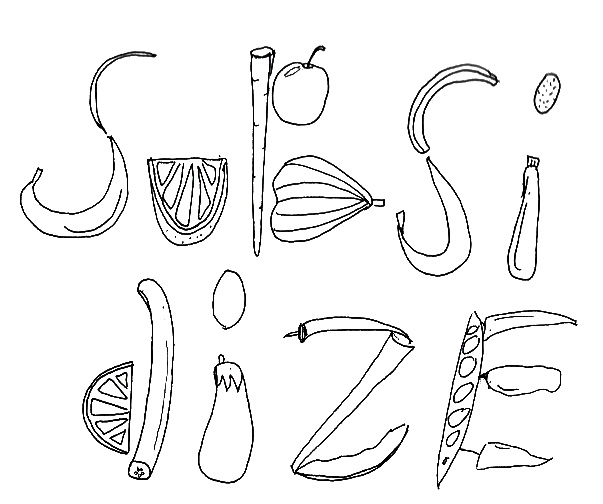 SuBSi
diZE